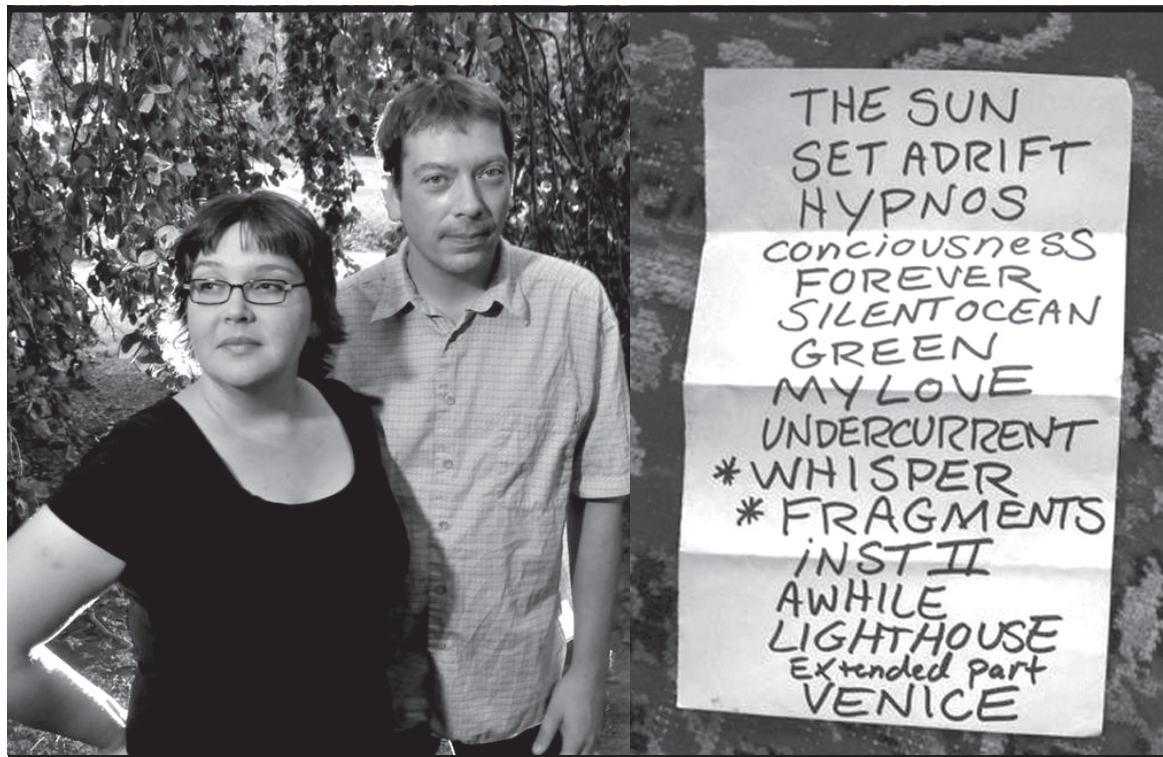 THE SUN
SET ADRIFT
HYPNOS
conciousness
FOREVER
SILENT OCEAN
GREEN
MY LOVE
UNDERCURRENT
* WHISPER
* FRAGMENTS
iNST II
AWHILE
LIGHTHOUSE
Extended part
VENICE